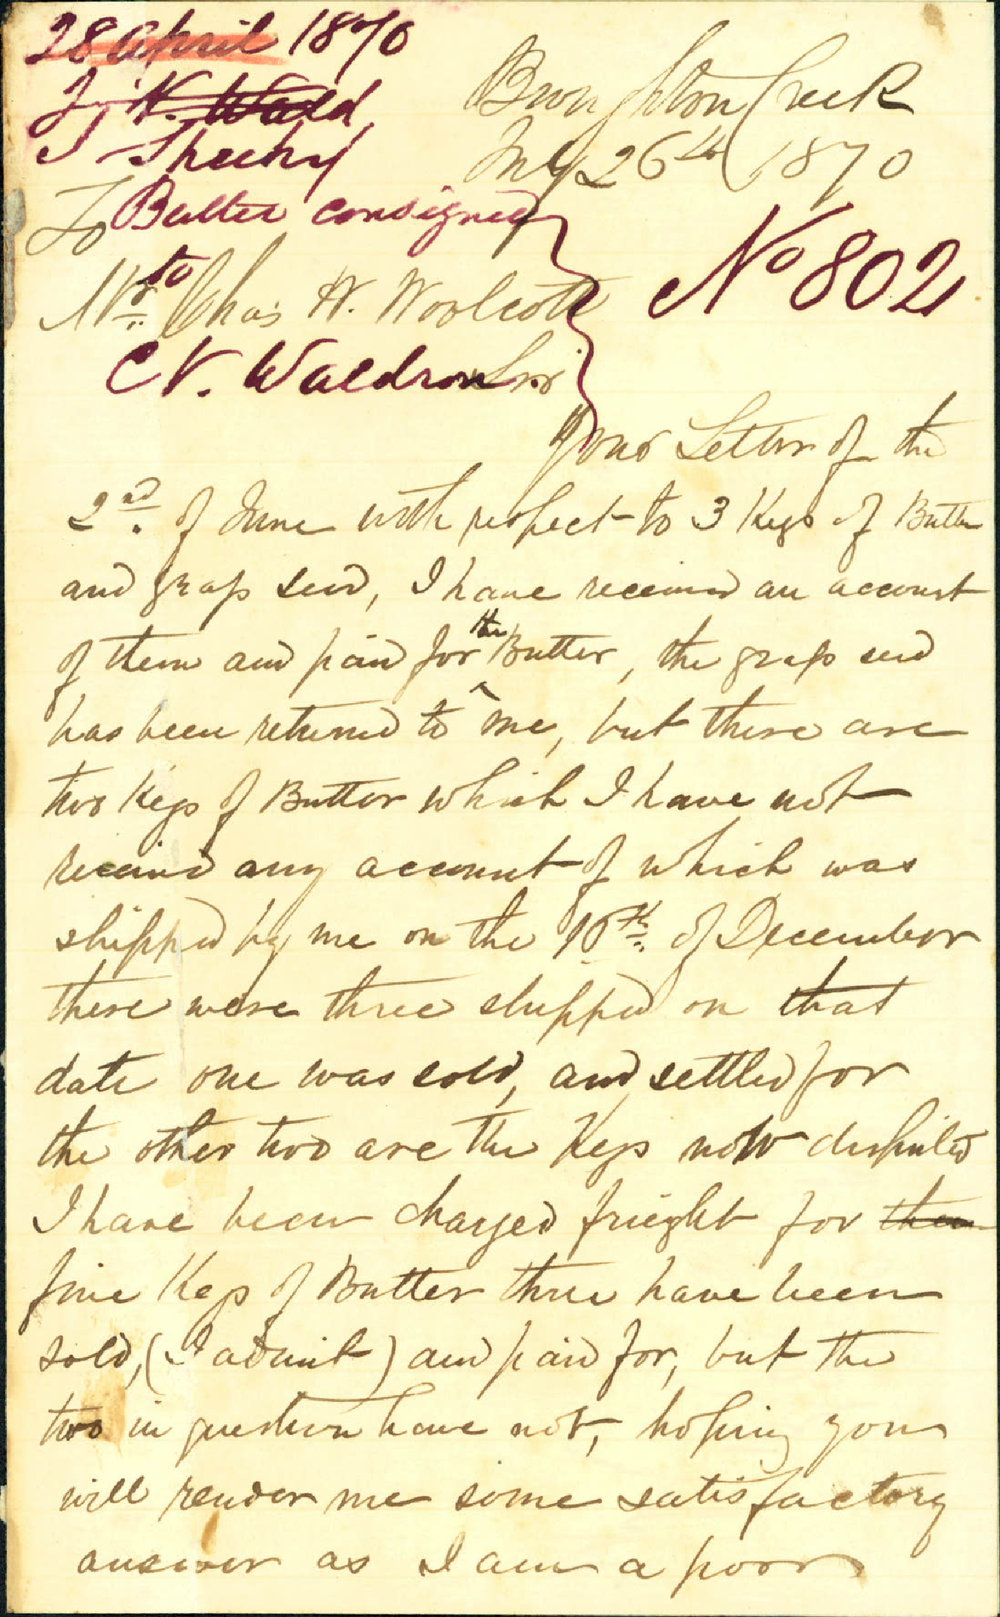 28 April 1870
J. Sheehy
Broughton Creek
July 26th 1870
Butter consigned
to
C V. Waldron
No 802
To
Mr. Chas W. Woolcott
Sir
Your Letter of the
2nd. of June with respect to 3 Kegs of Butter
and grass seed, I have received an account
of them and paid for the Butter, the grass seed
has been returned to me, but there are
two Kegs of Butter which I have not
received any account of which was
shipped by me on the 10th. of December
there were three shipped on that
date one was sold, and settled for
the other two are the Kegs now disputed
I have been charged frieght for
five Kegs of Butter three have been
sold, (I admit) and paid for, but the
two in question have not, hoping you
will render me some satisfactory
answer as I am a poor